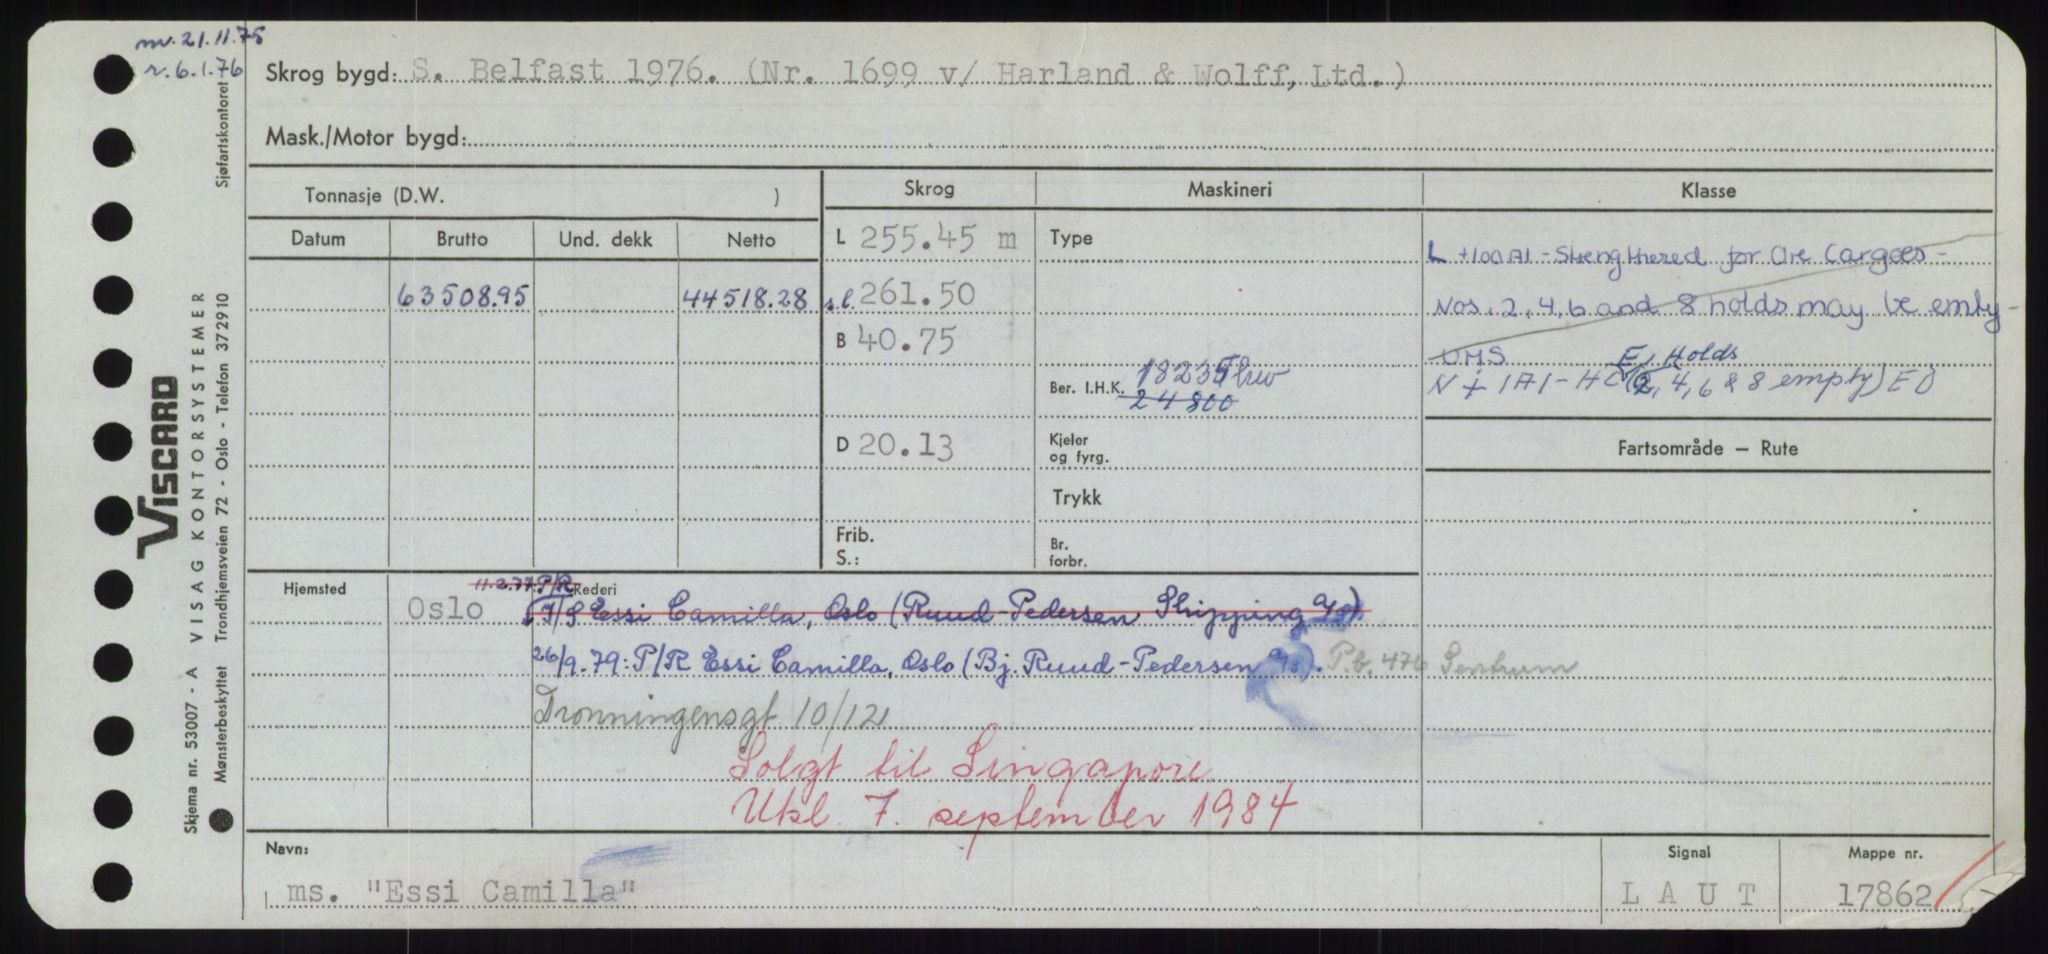 mv. 21.11.75
r. 6.1.76
Skrog bygd: S. Belfast 1976. (Nr. 1699 v/ Harland & Wolff, Ltd.)
Mask./Motor bygd:
Tonnasje (D.W. )
Skrog
Maskineri
Klasse
Datum
Brutto
Und. dekk
Netto
L 255.45 m
Type
L +100A1 - Strengthered for Ore Cargoes -
63508.95
44518.28
s.l. 261.50
Nos. 2, 4, 6 and 8 holds may be emty -
B 40.75
UMS
E, Holds
18235
Ber. I.H.K. 24800
N + 1A1 - HC (2, 4, 6 & 8 empty) EO
D 20.13
Kjeler
og fyrg.
Fartsområde — Rute
Trykk
Frib.
S.:
Br.
forbr.
Hjemsted
11.2.77: P/R
Rederi
Oslo
I/S Essi Camilla, Oslo (Ruud-Pedersen Shipping A/S)
26/9.79: P/R Essi Camilla, Oslo (Bj. Ruud-Pedersen A/S). P.b. 476 Sentrum
Dronningensgt 10/12
Solgt til Singapore
Utsl. 7. september 1984
Navn:
Signal
Mappe nr.
ms. "Essi Camilla"
L A U T
17862
VISCARD
Skjema nr. 53007 - A VISAG KONTORSYSTEMER
Mønsterbeskyttet Trondhjemsveien 72 - Oslo - Telefon 372910
Sjøfartskontoret